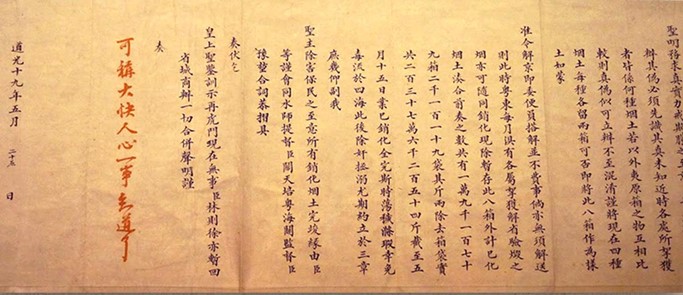 聖明務求真實力戒欺飾之至
辨其偽必須先識其真未知近時各處所拏獲
者皆係何種烟土若以外夷原箱之物互相比
較則真偽似可立辨不至混淆謹將現在四種
烟土每種各留兩箱可否即將此八箱作為樣
土如蒙
准令解京即委便員搭解並不費事倘亦無須解送
則此時粵東每月湏有各屬拏獲解省驗煅之
烟亦可隨同銷化現除暫存此八箱外計已化
烟土湊合前奏之數共有一萬九千一百七十
九箱二千一百一十九袋其斤兩除去箱袋實
共二百三十七萬六千二百五十四斤截至五
月十五日業已銷化全完斯時蕩穢滌瑕幸免
毒流於四海此後除奸拯溺尤期約立於三章
庶幾仰副我
聖主除害保民之至意所有銷化烟土完竣緣由臣
等謹會同水師提督臣關天培粵海關監督臣
豫堃合詞恭摺具
奏伏乞
皇上聖鑒訓示再虎門現在無事臣林則徐亦暫回
省城商辦一切合併聲明謹
奏
可稱大快人心一事知道了
道光十九年五月 二十五 日